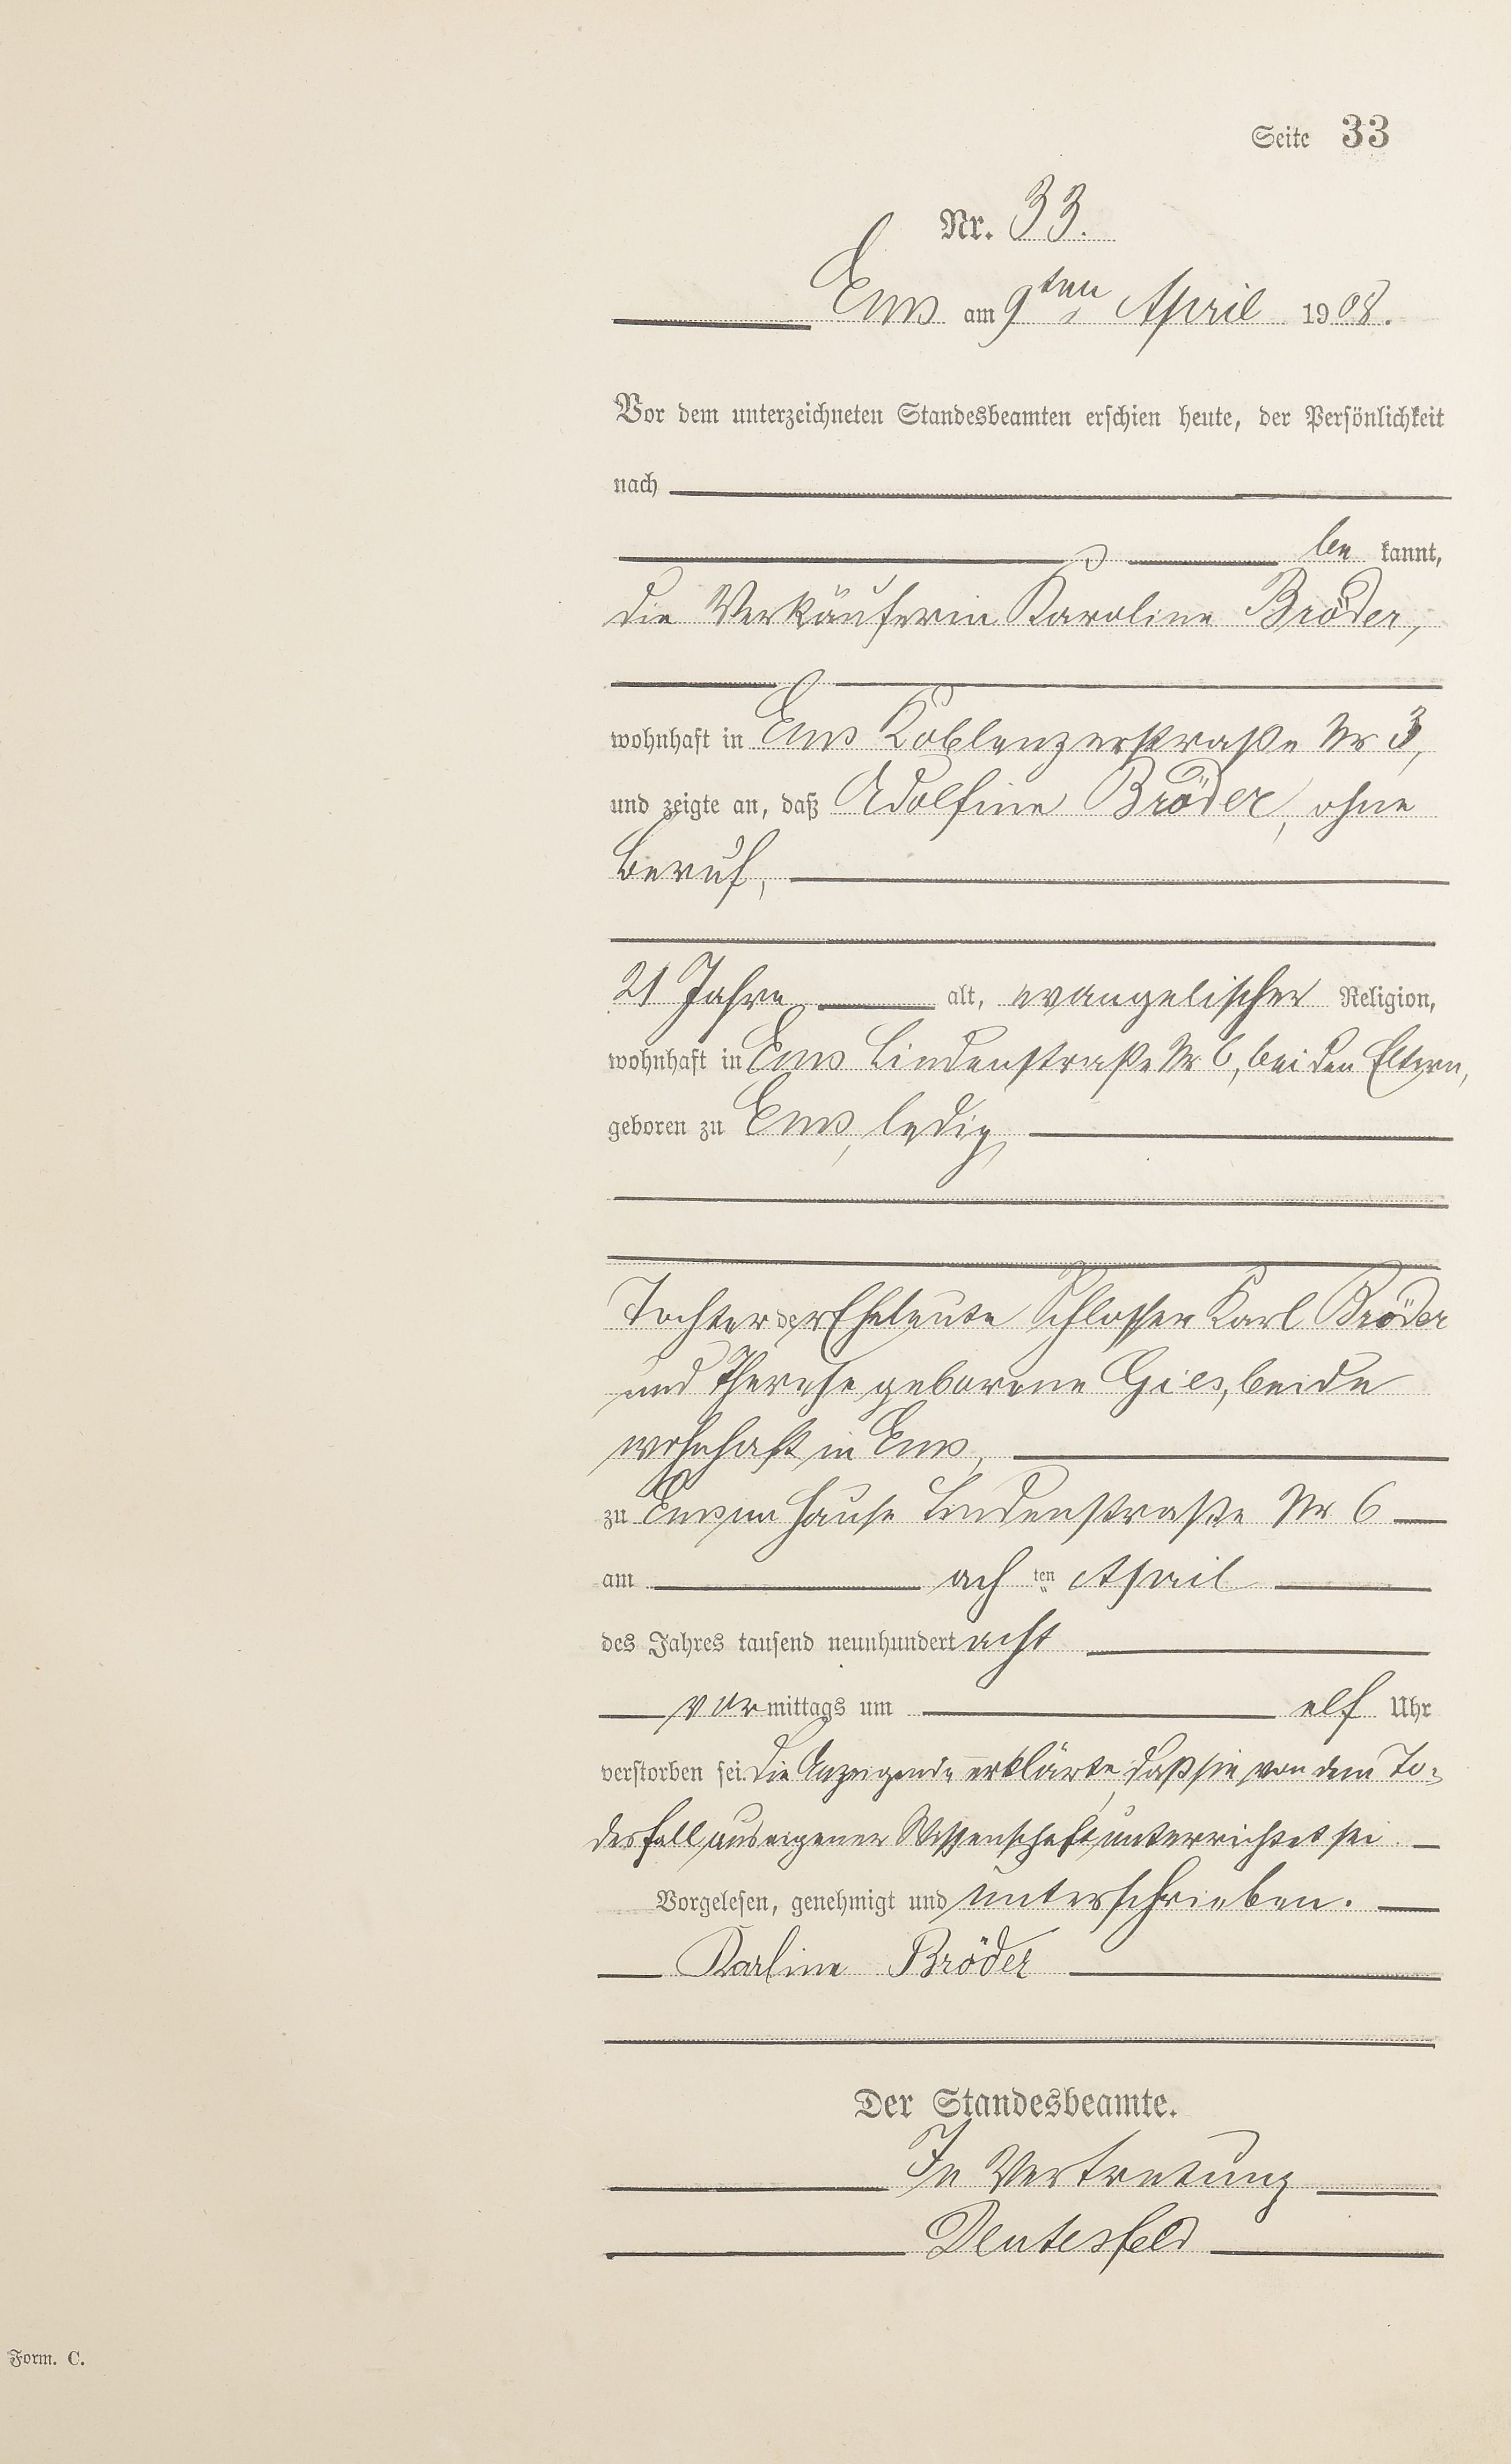 Seite 33
Nr. 33.
Ems am 9ten April 1908.
Vor dem unterzeichneten Standesbeamten erschien heute, der Persönlichkeit
nach
be kannt,
die Verkäuferin Karoline Bröder,
wohnhaft in Ems Koblenzerstraße Nr 3,
und zeigte an, daß Adolfine Bröder, ohne
Beruf,
21 Jahre alt, evangelischer Religion,
wohnhaft in Ems Lindenstraße Nr 6, bei den Eltern,
geboren zu Ems, ledig,
Tochter der Eheleute Schlosser Karl Bröder
und Therese geborene Gies, beide
wohnhaft in Ems,
zu Ems im Hause Lindenstraße Nr 6
am ach ten April
des Jahres tausend neunhundert acht
vor mittags um elf Uhr
verstorben sei. Die Anzeigende erklärte, daß sie von dem To-
desfall aus eigener Wissenschaft unterrichtet sei.
Vorgelesen, genehmigt und unterschrieben.
Karline Bröder
Der Standesbeamte.
In Vertretung
Deutesfeld
Form. C.